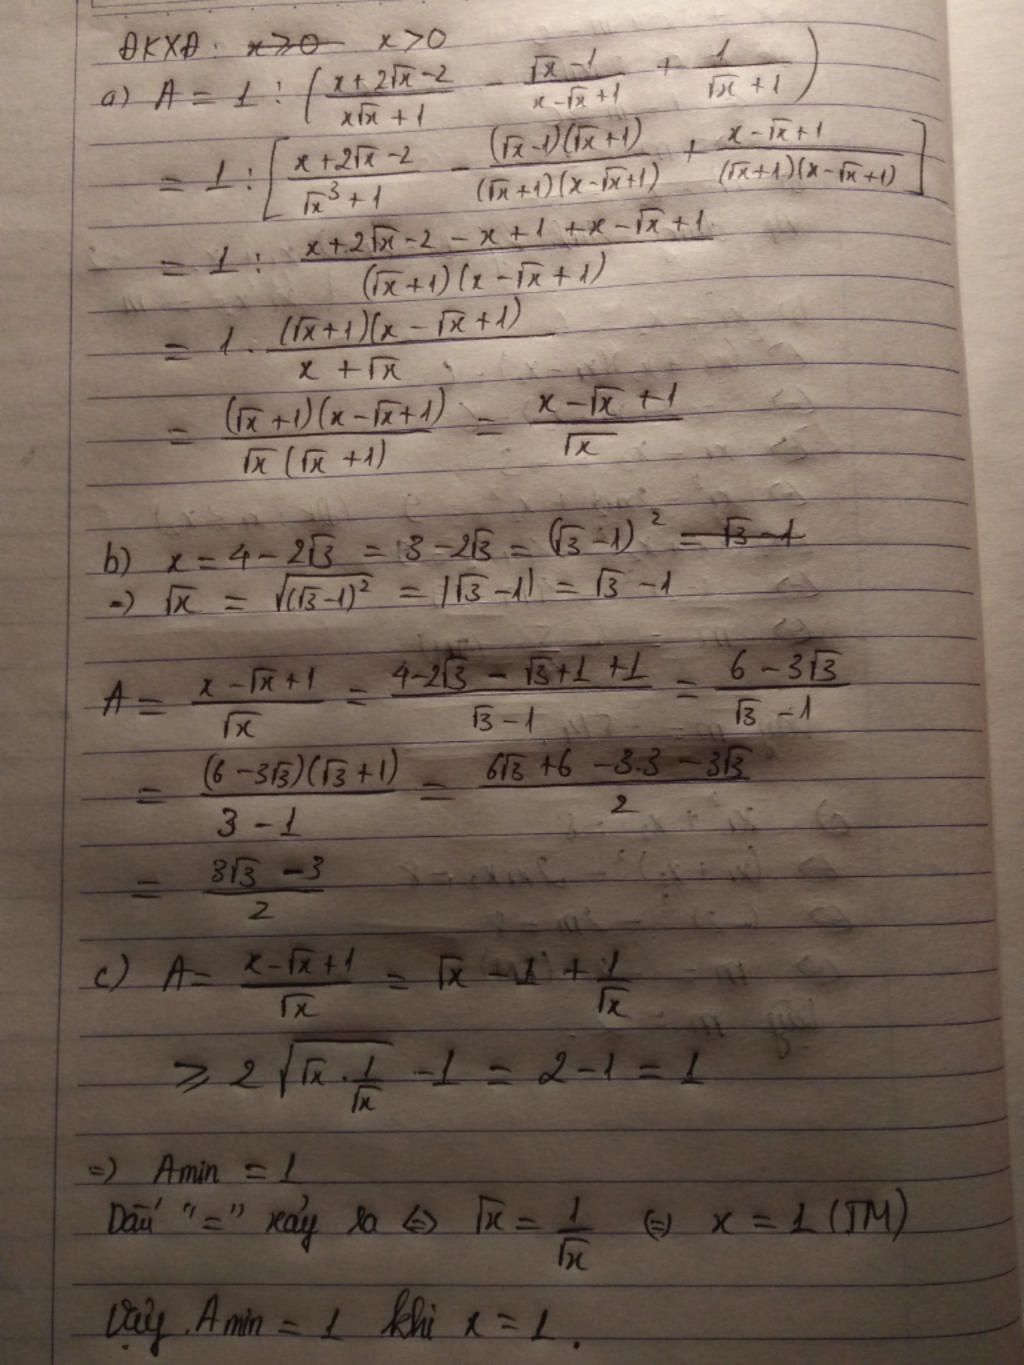 ĐKXĐ: x ≥ 0 x > 0
a) A = 1 : ( (x + 2√x - 2)/(x√x + 1) - (√x - 1)/(x - √x + 1) + 1/(√x + 1) )
= 1 : [ (x + 2√x - 2)/(√x³ + 1) - ((√x - 1)(√x + 1))/((√x + 1)(x - √x + 1)) + (x - √x + 1)/((√x + 1)(x - √x + 1)) ]
= 1 : (x + 2√x - 2 - x + 1 + x - √x + 1)/((√x + 1)(x - √x + 1))
= 1 . ((√x + 1)(x - √x + 1))/(x + √x)
= ((√x + 1)(x - √x + 1))/(√x (√x + 1)) = (x - √x + 1)/√x
b) x = 4 - 2√3 = 3 - 2√3 = (√3 - 1)² = √3 - 1
=) √x = √((√3 - 1)²) = |√3 - 1| = √3 - 1
A = (x - √x + 1)/√x = (4 - 2√3 - √3 + 1 + 1)/(√3 - 1) = (6 - 3√3)/(√3 - 1)
= ((6 - 3√3)(√3 + 1))/(3 - 1) = (6√3 + 6 - 3.3 - 3√3)/2
= (3√3 - 3)/2
c) A = (x - √x + 1)/√x = √x - 1 + 1/√x
≥ 2√(√x . 1/√x) - 1 = 2 - 1 = 1
=) Amin = 1
Dấu "=" xảy ra <=> √x = 1/√x (=) x = 1 (TM)
Vậy Amin = 1 khi x = 1.